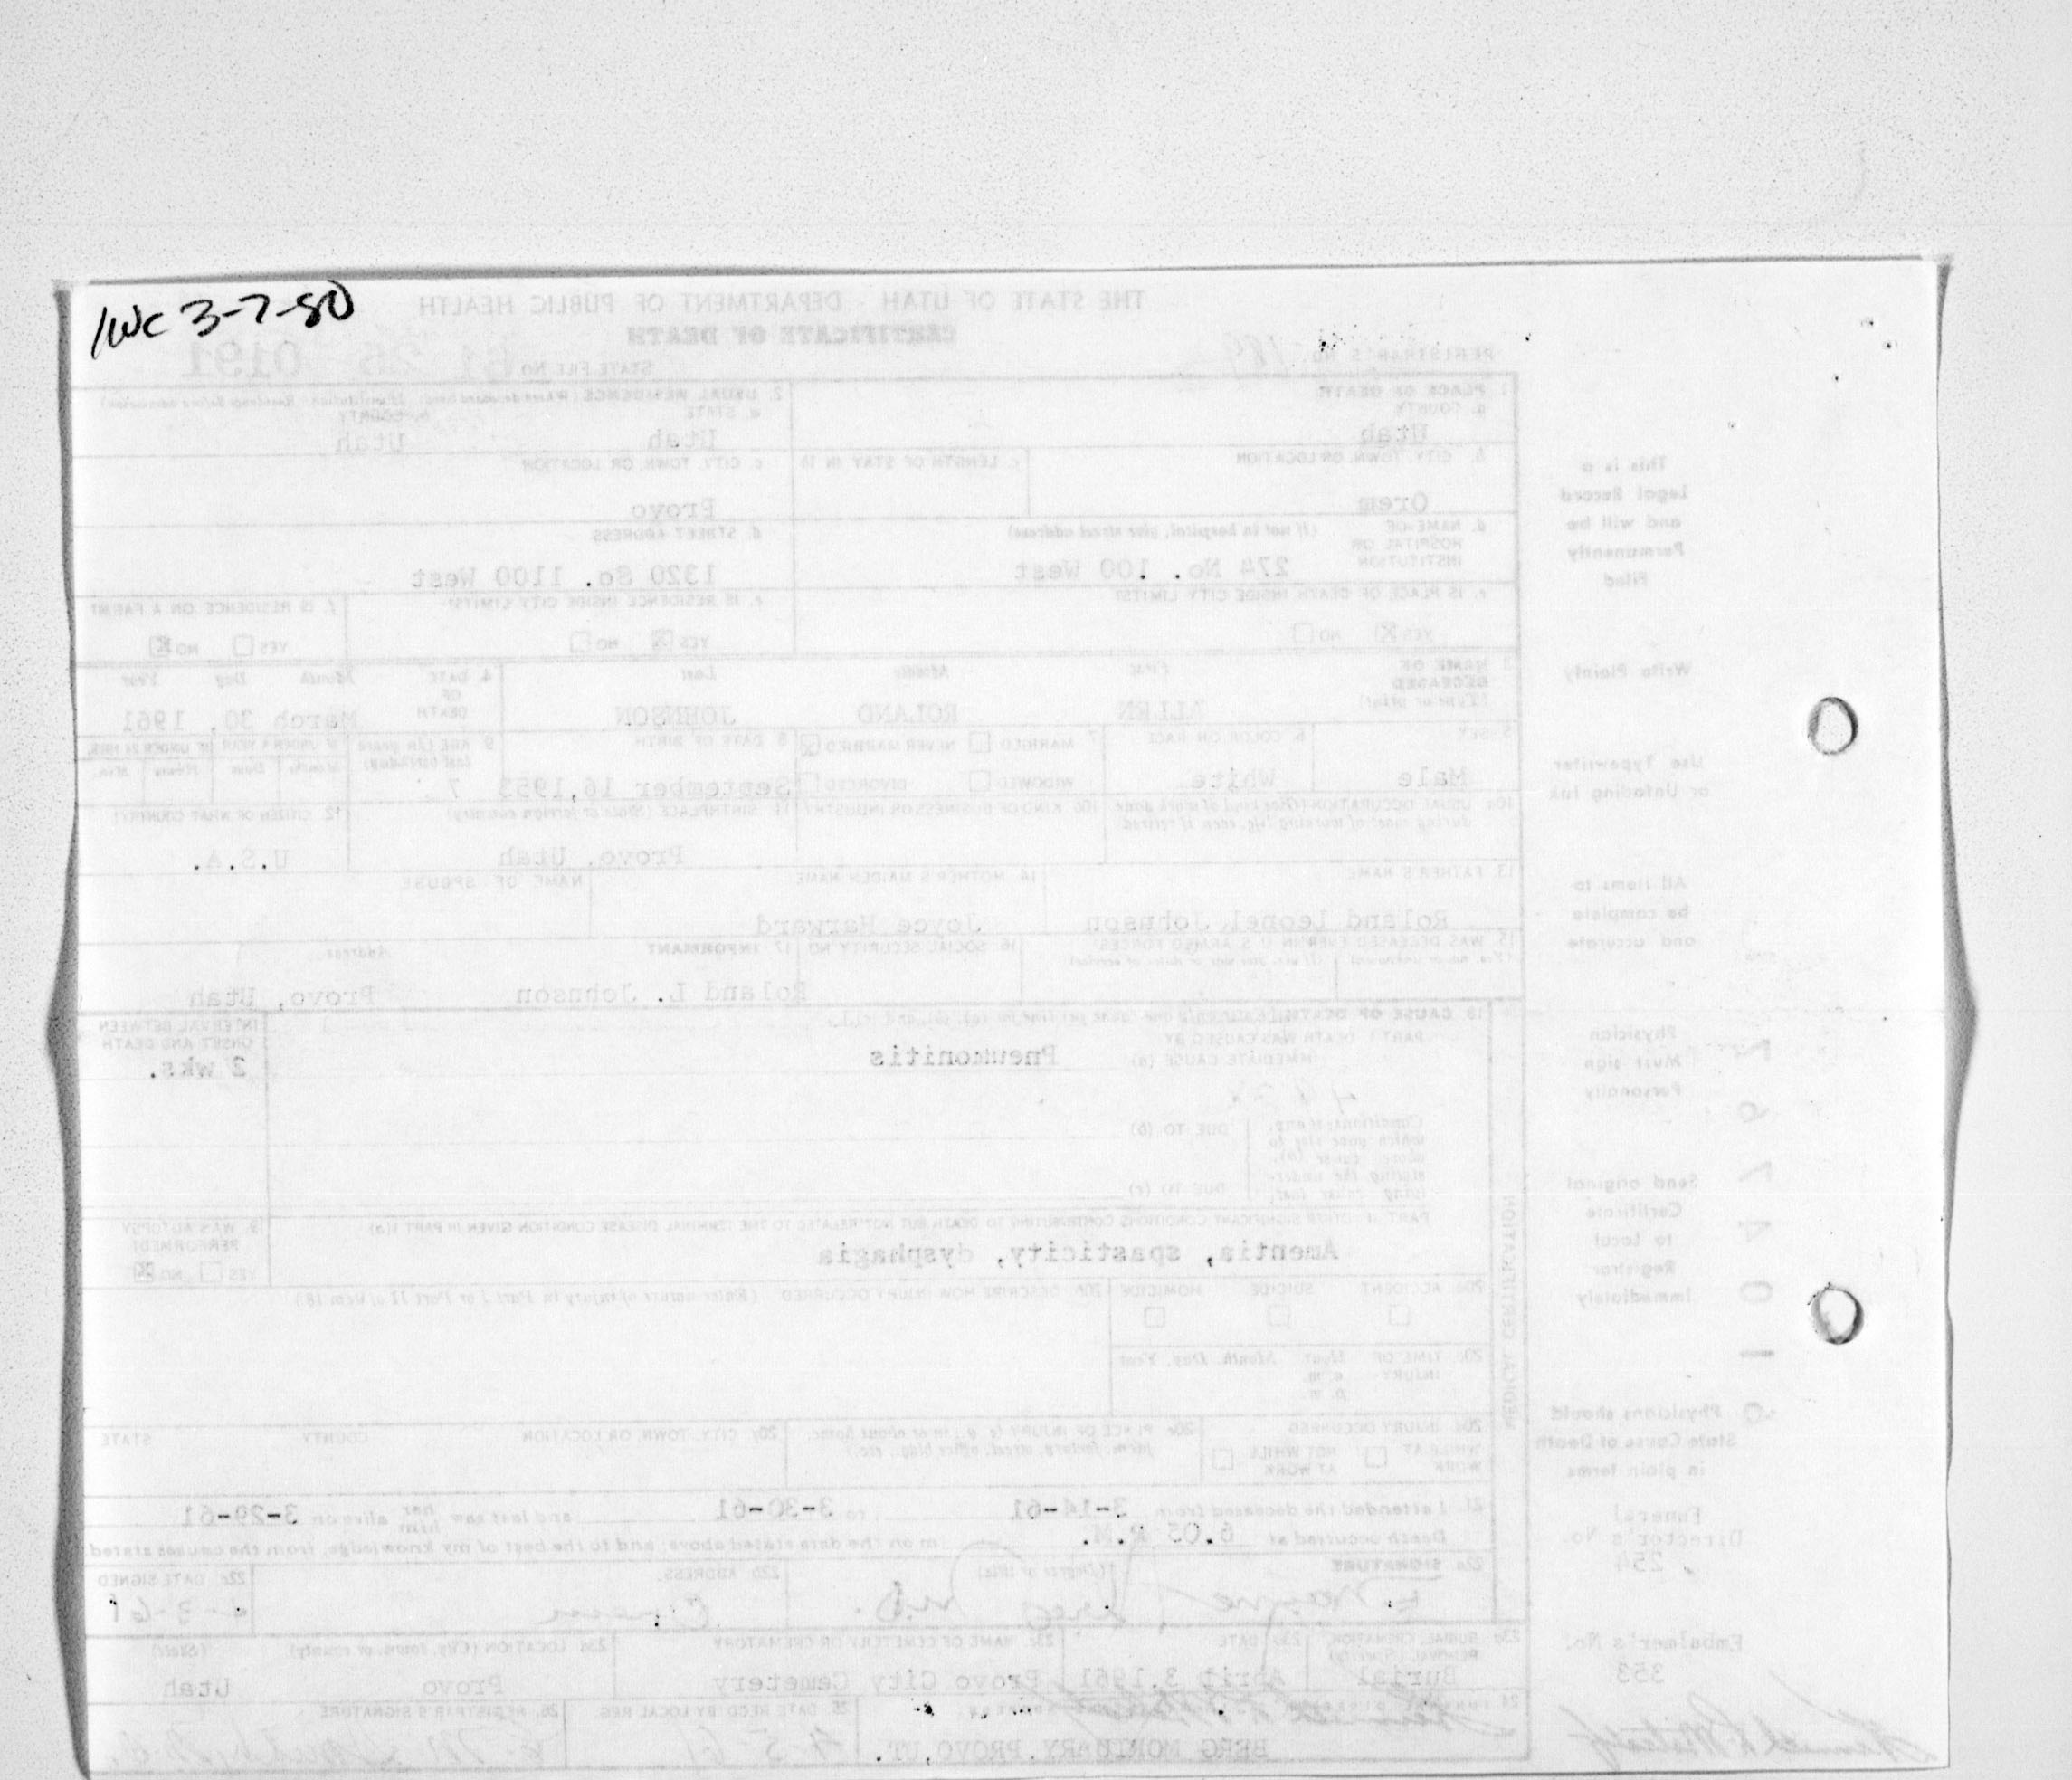 IWC 3-7-80
THE STATE OF UTAH - DEPARTMENT OF PUBLIC HEALTH
CERTIFICATE OF DEATH
REGISTRAR'S NO. 189
STATE FILE NO. 61 25 0191
1. PLACE OF DEATH
a. COUNTY
Utah
2. USUAL RESIDENCE (Where deceased lived. If institution: Residence before admission)
a. STATE
b. COUNTY
Utah Utah
b. CITY, TOWN, OR LOCATION
Orem
c. LENGTH OF STAY IN 1b
c. CITY, TOWN, OR LOCATION
Provo
d. NAME OF HOSPITAL OR INSTITUTION (If not in hospital, give street address)
274 No. 100 West
d. STREET ADDRESS
1320 So. 1100 West
e. IS PLACE OF DEATH INSIDE CITY LIMITS?
YES X NO
e. IS RESIDENCE INSIDE CITY LIMITS?
YES X NO
f. IS RESIDENCE ON A FARM?
YES NO X
3. NAME OF DECEASED (Type or print)
First Middle Last
ALLEN ROLAND JOHNSON
4. DATE OF DEATH
Month Day Year
March 30, 1961
5. SEX
Male
6. COLOR OR RACE
White
7. MARRIED NEVER MARRIED X
WIDOWED DIVORCED
8. DATE OF BIRTH
September 16, 1953
9. AGE (In years last birthday)
7
IF UNDER 1 YEAR IF UNDER 24 HRS.
Months Days Hours Min.
10a. USUAL OCCUPATION (Give kind of work done during most of working life, even if retired)
10b. KIND OF BUSINESS OR INDUSTRY
11. BIRTHPLACE (State or foreign country)
Provo, Utah
12. CITIZEN OF WHAT COUNTRY?
U.S.A.
13. FATHER'S NAME
Roland Leonel Johnson
14. MOTHER'S MAIDEN NAME
Joyce Harward
NAME OF SPOUSE
15. WAS DECEASED EVER IN U.S. ARMED FORCES?
(Yes, no or unknown) (If yes, give war or dates of service)
16. SOCIAL SECURITY NO.
17. INFORMANT Address
Roland L. Johnson Provo, Utah
18. CAUSE OF DEATH
PART I. DEATH WAS CAUSED BY
IMMEDIATE CAUSE (a)
Pneumonitis
INTERVAL BETWEEN ONSET AND DEATH
2 wks.
Conditions, if any, which gave rise to above cause (a), stating the underlying cause last.
DUE TO (b)
DUE TO (c)
PART II. OTHER SIGNIFICANT CONDITIONS CONTRIBUTING TO DEATH BUT NOT RELATED TO THE TERMINAL DISEASE CONDITION GIVEN IN PART I(a)
Amentia, spasticity, dysphagia
19. WAS AUTOPSY PERFORMED?
YES NO X
20a. ACCIDENT SUICIDE HOMICIDE
20b. DESCRIBE HOW INJURY OCCURRED (Enter nature of injury in Part I or Part II of item 18.)
20c. TIME OF INJURY Hour Month, Day, Year
a. m.
p. m.
20d. INJURY OCCURRED
WHILE AT WORK NOT WHILE AT WORK
20e. PLACE OF INJURY (e. g., in or about home, farm, factory, street, office bldg., etc.)
20f. CITY, TOWN, OR LOCATION COUNTY STATE
MEDICAL CERTIFICATION
21. I attended the deceased from 3-14-61 to 3-30-61 and last saw her him alive on 3-29-61
Death occurred at 6.05 P.M. m on the date stated above; and to the best of my knowledge, from the causes stated.
22a. SIGNATURE (Degree or title)
M.D.
22b. ADDRESS
Orem
22c. DATE SIGNED
23a. BURIAL, CREMATION, REMOVAL (Specify)
Burial
23b. DATE
April 3, 1961
23c. NAME OF CEMETERY OR CREMATORY
Provo City Cemetery
23d. LOCATION (City, town, or county) (State)
Provo Utah
24. FUNERAL DIRECTOR
BERG MORTUARY PROVO, UT.
25. DATE REC'D BY LOCAL REG.
4-5-61
26. REGISTRAR'S SIGNATURE
This is a
Legal Record
and will be
Permanently
Filed
Write Plainly
Use Typewriter
or Unfading Ink
All Items to
be complete
and accurate
Physician
Must sign
Personally
Send original
Certificate
to Local
Registrar
Immediately
Physicians should
State Cause of Death
in plain terms
Funeral
Director's No.
254
Embalmer's No.
353